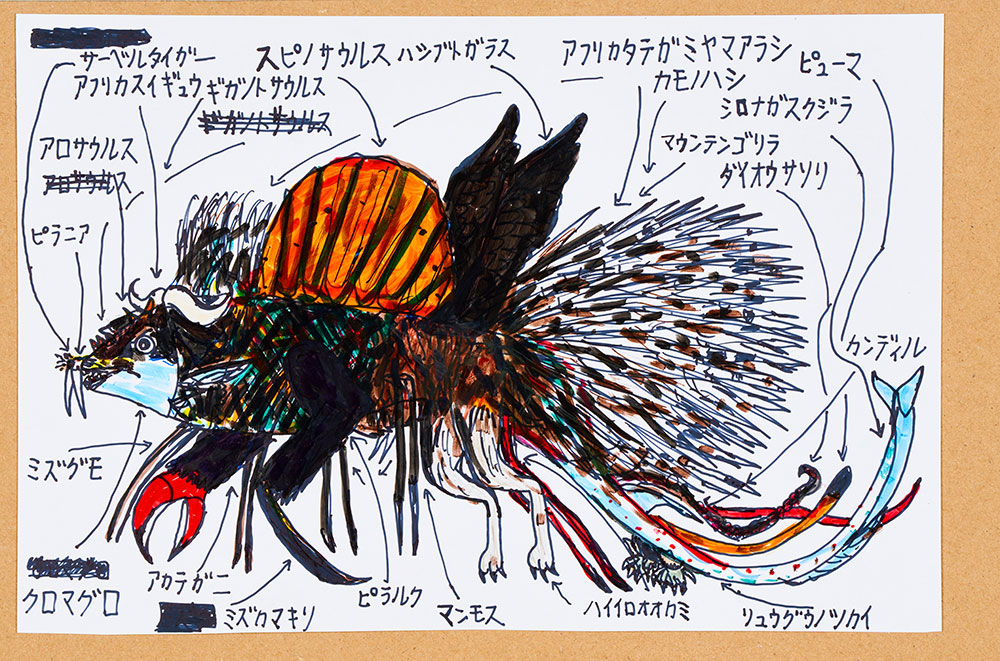 サーベルタイガー
スピノサウルス ハシブトガラス
アフリカタテガミヤマアラシ
ピューマ
アフリカスイギュウ ギガノトサウルス
カモノハシ
シロナガスクジラ
アロサウルス
マウンテンゴリラ
ダイオウサソリ
ピラニア
カンディル
ミズグモ
クロマグロ
アカテガニ
ミズカマキリ
ピラルク
マンモス
ハイイロオオカミ
リュウグウノツカイ